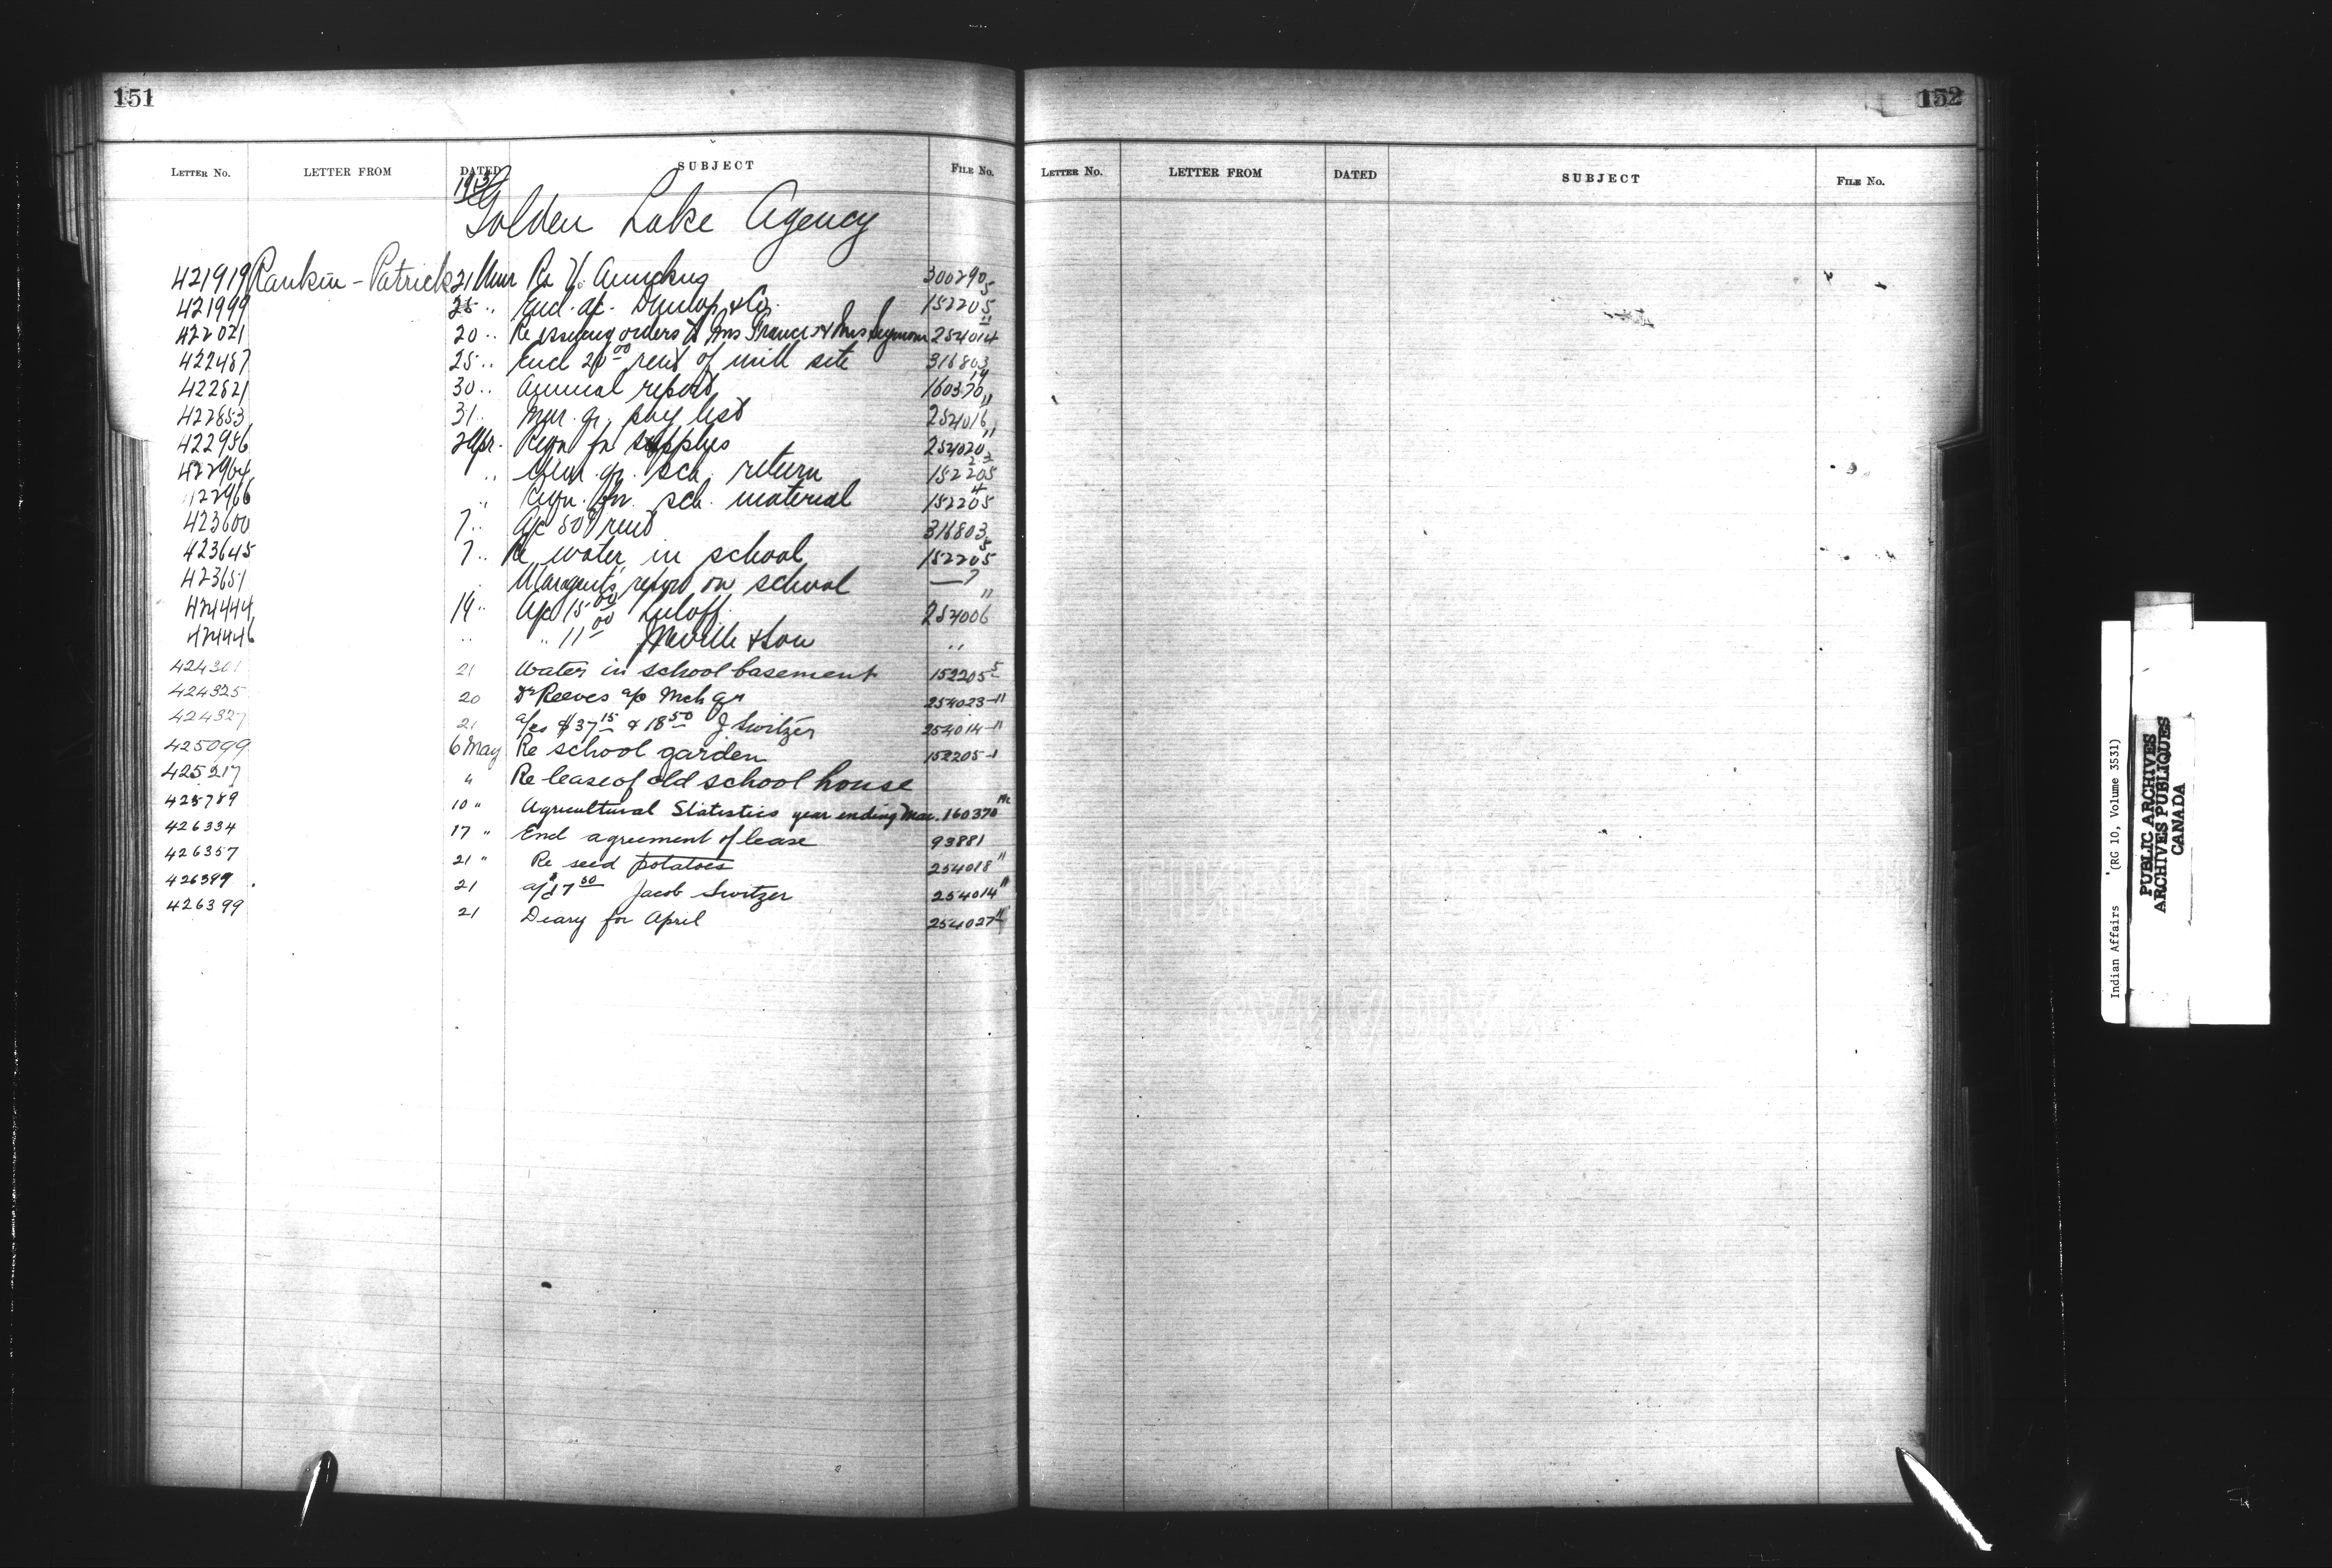 151
LETTER NO. LETTER FROM DATED SUBJECT FILE NO.
Golden Lake Agency
421919 Rankin - Patrick 21 Mar Re 300290 5
421999 25 " Encl. a/c. Dunlop & Co. 152205
422021 20 " Re issuing orders to Mrs Francis & Mrs Seymour 254014 11
422487 25 " Encl 20 00 rent of mill site 316803
422821 30 " Annual report 160370 14
422853 31 Mar. qr. pay list 254016 11
422956 2 Apr. Reqn for supplies 254020 11
422964 " qr. sch. return 152205
22966 " Reqn. for sch. material 152205 4
423600 7 " a/c rent 316803
423645 7 " Re water in school 152205 5
423651 report on school — 7
424444 19 " a/c 15 00 Luloff 254006 11
424446 " " 11 00 Neville & Son "
424301 21 Water in school basement 152205 5
424325 20 Dr Reeves a/c Mch qr 254023-11
424327 21 a/cs $37 15 & 18 50 J Switzer 254014-11
425099 6 May Re school garden 152205-1
425217 " Re lease of old school house
425789 10 " Agricultural Statistics year ending Mar. 160370
426334 17 " Encl agreement of lease 93881
426357 21 " Re seed potatoes 254018 11
426389 21 a/c $17 50 Jacob Switzer 254014 11
426399 21 Diary for April 254027
152
LETTER NO. LETTER FROM DATED SUBJECT FILE NO.
Indian Affairs (RG 10, Volume 3531)
PUBLIC ARCHIVES
ARCHIVES PUBLIQUES
CANADA